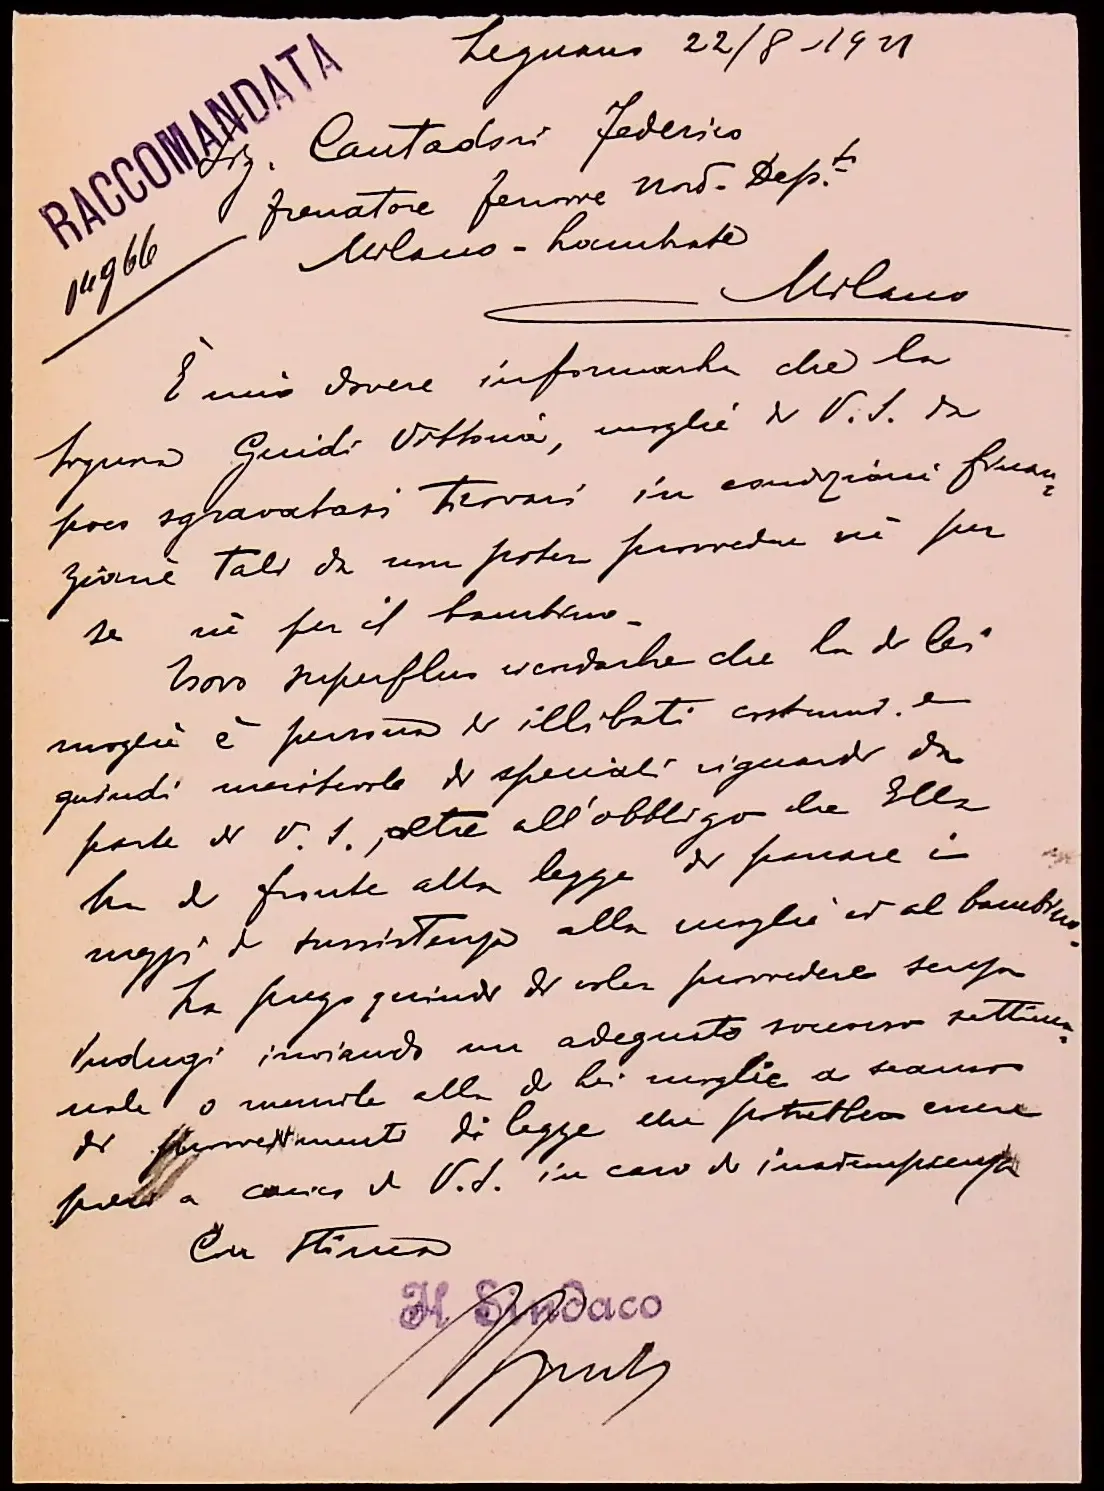 Legnano 22/8-1921
RACCOMANDATA
Sig. Cantadori Federico
frenatore ferrovie Nord - Dep.to
Milano - Lambrate
Milano
È mio dovere informarla che la
Signora Guidi Vittoria, moglie di V. S. da
poco sgravatasi trovasi in condizioni finan=
ziarie tali da non poter provvedere nè per
se nè per il bambino -
Trovo superfluo ricordarle che la di Lei
moglie è persona di illibati costumi e
quindi meritevole di speciali riguardi da
parte di V. S., oltre all'obbligo che Ella
ha di fronte alla legge di passare i
mezzi di sussistenza alla moglie ed al bambino.
La prego quindi di voler provvedere senza
indugi inviando un adeguato soccorso settima=
nale o mensile alla di Lei moglie a scanso
di provvedimenti di legge che potrebbero essere
presi a carico di V. S. in caso di inadempienza
Con stima
Il Sindaco